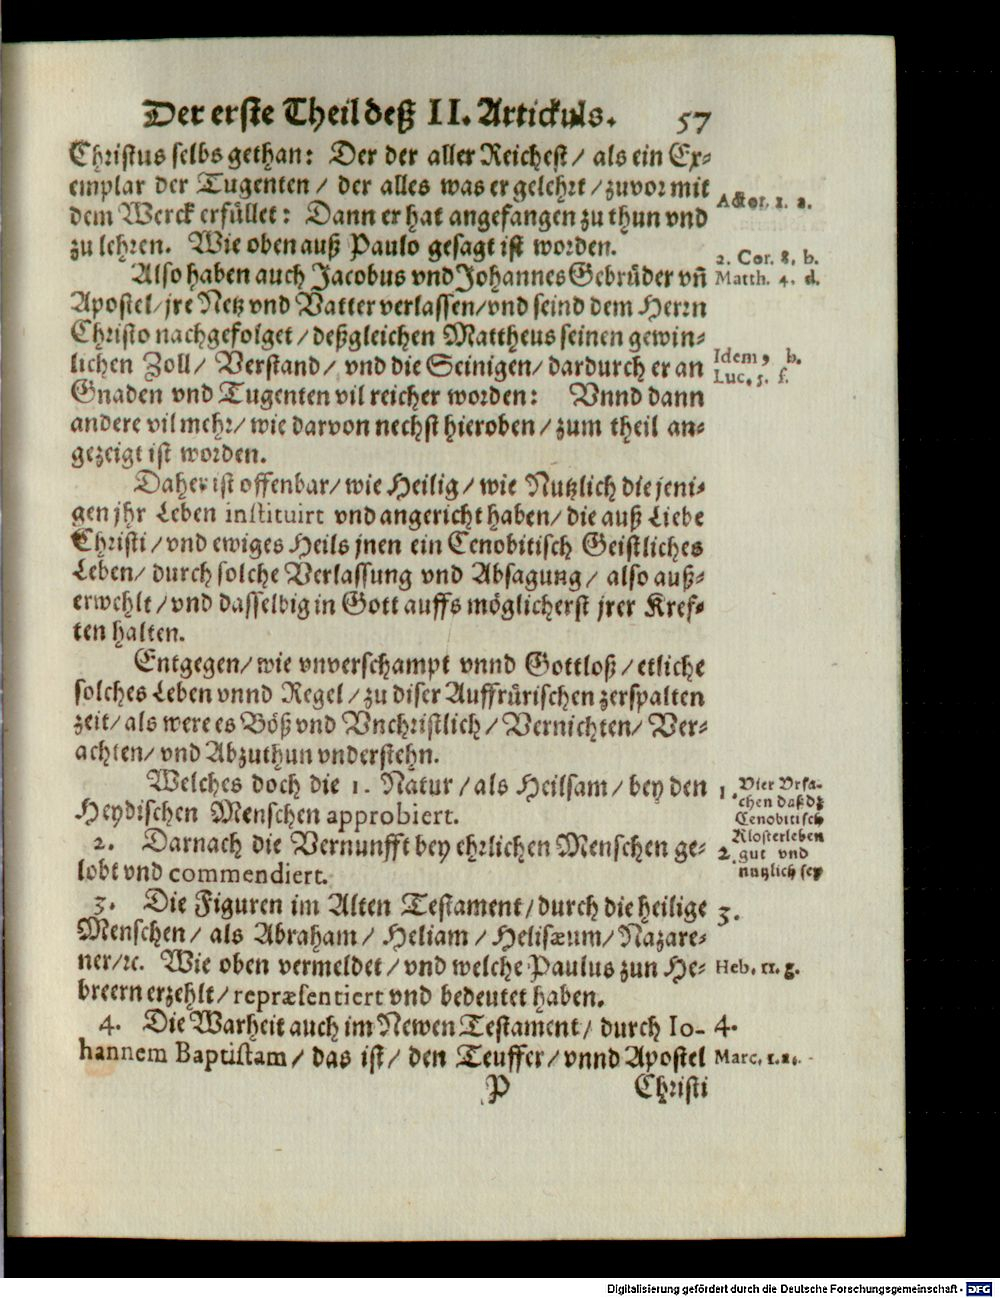 Der erste Theil deß II. Artickuls. 57
Christus selbs gethan: Der der aller Reichest / als ein Ex-
emplar der Tugenten / der alles was er gelehrt / zuvor mit
dem Werck erfüllet: Dann er hat angefangen zu thun vnd
Actor. 1. a.
zu lehren. Wie oben auß Paulo gesagt ist worden.
2. Cor. 8. b.
Also haben auch Jacobus vnd Johannes Gebrüder vñ
Matth. 4. d.
Apostel / jre Netz vnd Vatter verlassen / vnd seind dem Herrn
Christo nachgefolget / deßgleichen Mattheus seinen gewin-
lichen Zoll / Verstand / vnd die Seinigen / dardurch er an
Idem, b.
Luc. 5. f.
Gnaden vnd Tugenten vil reicher worden: Vnnd dann
andere vil mehr / wie darvon nechst hieroben / zum theil an-
gezeigt ist worden.
Daher ist offenbar / wie Heilig / wie Nutzlich die jeni-
gen jhr Leben instituirt vnd angericht haben / die auß Liebe
Christi / vnd ewiges Heils jnen ein Cenobitisch Geistliches
Leben / durch solche Verlassung vnd Absagung / also auß-
erwehlt / vnd dasselbig in Gott auffs möglicherst jrer Kref-
ten halten.
Entgegen / wie vnverschampt vnnd Gottloß / etliche
solches Leben vnnd Regel / zu diser Auffrürischen zerspalten
zeit / als were es Böß vnd Vnchristlich / Vernichten / Ver-
achten / vnd Abzuthun vnderstehn.
Welches doch die 1. Natur / als Heilsam / bey den
Heydischen Menschen approbiert.
1. Vier Vrsa-
chen daß dz
Cenobitisch
Klosterleben
2. gut vnd
nutzlich sey
2. Darnach die Vernunfft bey ehrlichen Menschen ge-
lobt vnd commendiert.
3. Die Figuren im Alten Testament / durch die heilige
3.
Menschen / als Abraham / Heliam / Helisæum / Nazare-
ner / ꝛc. Wie oben vermeldet / vnd welche Paulus zun He-
Heb. 11. g.
breern erzehlt / repræsentiert vnd bedeutet haben.
4. Die Warheit auch im Newen Testament / durch Io-
4.
hannem Baptistam / das ist / den Teuffer / vnnd Apostel
Marc. 1. a.
P Christi
Digitalisierung gefördert durch die Deutsche Forschungsgemeinschaft - DFG